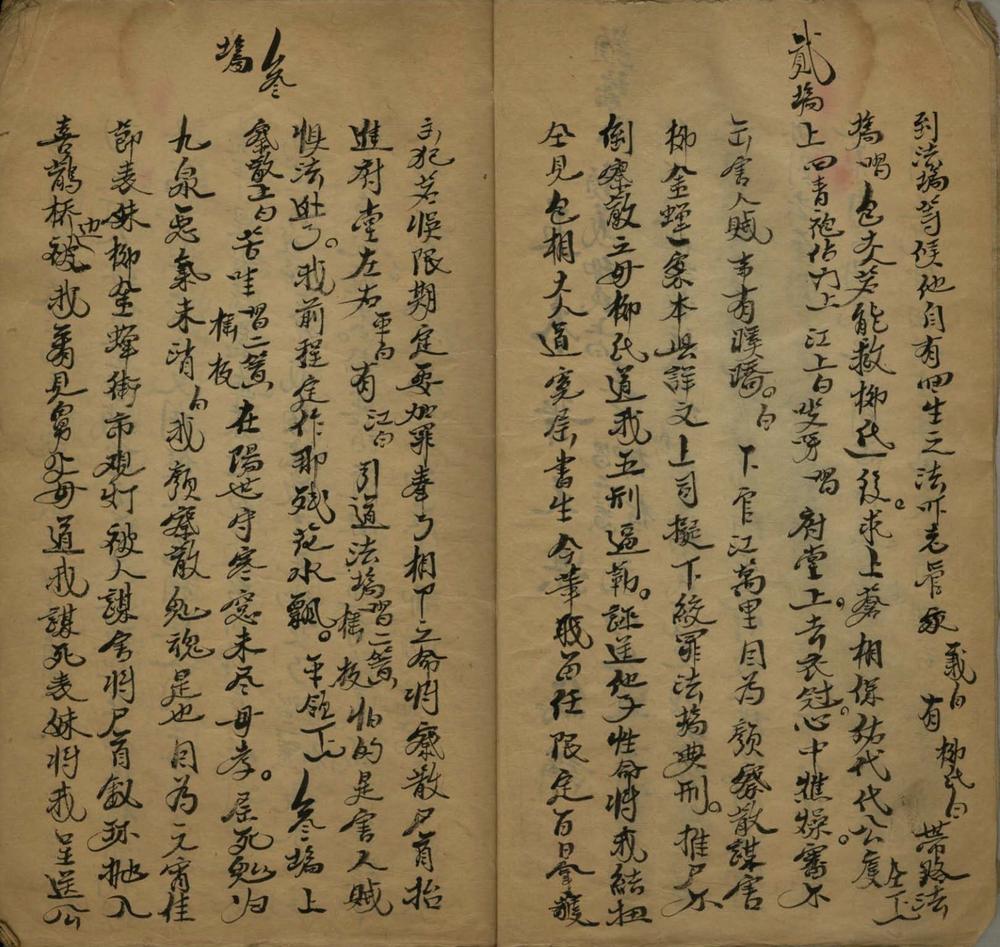 到法塲等候他自有回生之法吓老管家 義白 有 柳氏白 帶路法
塲唱 包大老能救柳氏一後。求上蒼相保祐代代公度 全下
貳塲 上四青袍佔門上 江上白 唱 府堂上去衣冠。心中焦燥。審不
出害人賊事有蹊蹺。白 下官江萬里因為顏察散謀害
柳金蟬一案本縣詳文上司擬下絞罪法塲典刑。推尸不
倒察散之母柳氏道我五刑逼勒。誣送他子性命將我結扭
全見包相大人道寃屈書生令革職留任限定百日拿獲
主犯若悞限期定要加罪奉了相下之命將察散尸首抬
進府堂左右 手白 有 江白 引道法塲 唱二簧 搖板 怕的是害人賊
惧法逃了。我前程定作那殘花水飄。手領下 叁塲 上
察散上白 苦哇 唱二簧 搖板 在陽世守寒窓未尽母孝。屈死鬼归
九泉怨氣未消 白 我顏察散鬼魂是也因為元宵佳
節表妹柳金蟬街市观灯被人謀害將尸首 抛入
喜鵲桥边被我看見舅父母道我謀死表妹将我呈送公